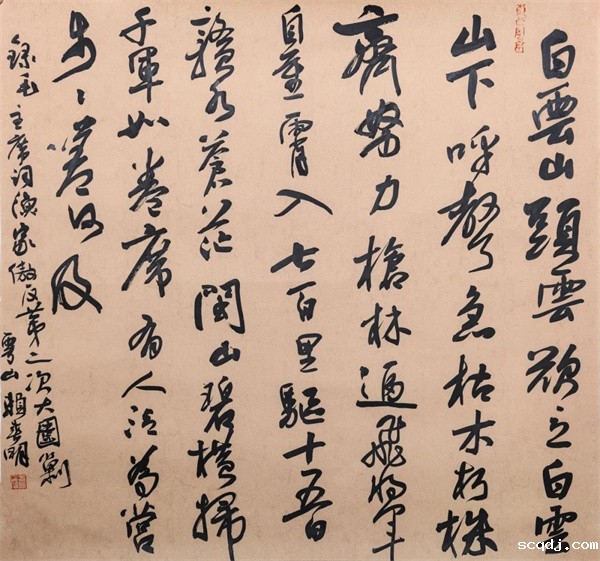 白雲山頭雲欲立白雲
山下呼聲急枯木朽株
齊努力槍林逼飛將軍
自重霄入七百里驅十五日
贛水蒼茫閩山碧橫掃
千軍如卷席有人泣為營
步〻嗟何及
錄毛主席詞漁家傲反第二次大圍剿
山 明
scqdj.com